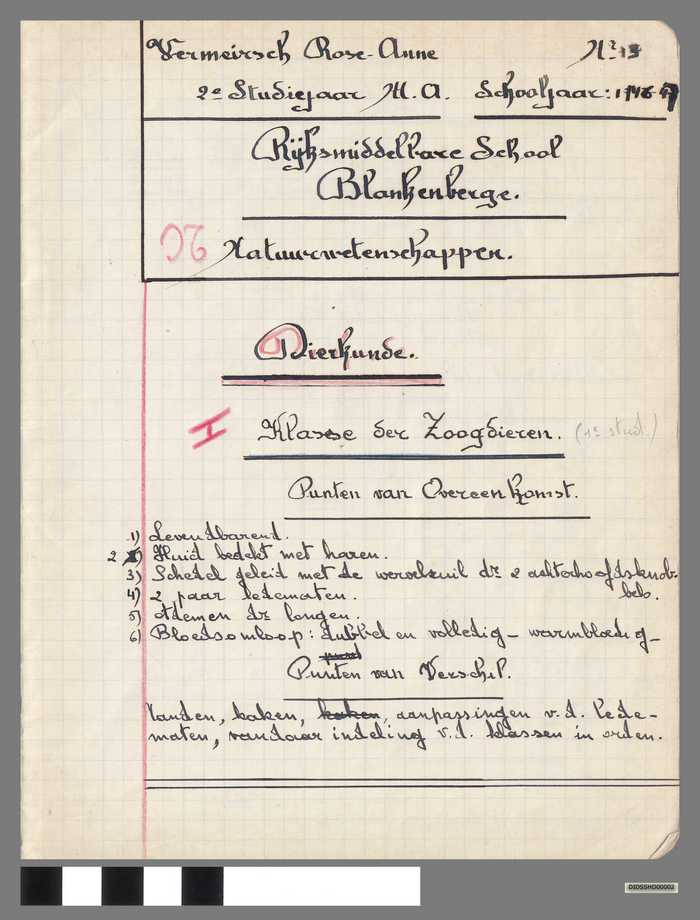 Vermeirsch Rose-Anne Nr 13
2e Studiejaar M.A. Schooljaar: 1946-47
Rijksmiddelbare School
Blankenberge.
Natuurwetenschappen.
Dierkunde.
I Klasse der Zoogdieren. (1e stud.)
Punten van Overeenkomst.
1) Levendbarend.
2) Huid bedekt met haren.
3) Schedel geleid met de wervelzuil dr 2 achterhoofdsknob-
bels.
4) 2 paar ledematen.
5) Ademen dr longen.
6) Bloedsomloop: dubbel en volledig – warmbloedig –
Punten van Verschil.
Tanden, kaken, kaken, aanpassingen v.d. lede-
maten, vandaar indeling v.d. klassen in orden.
DIDSSHO00002